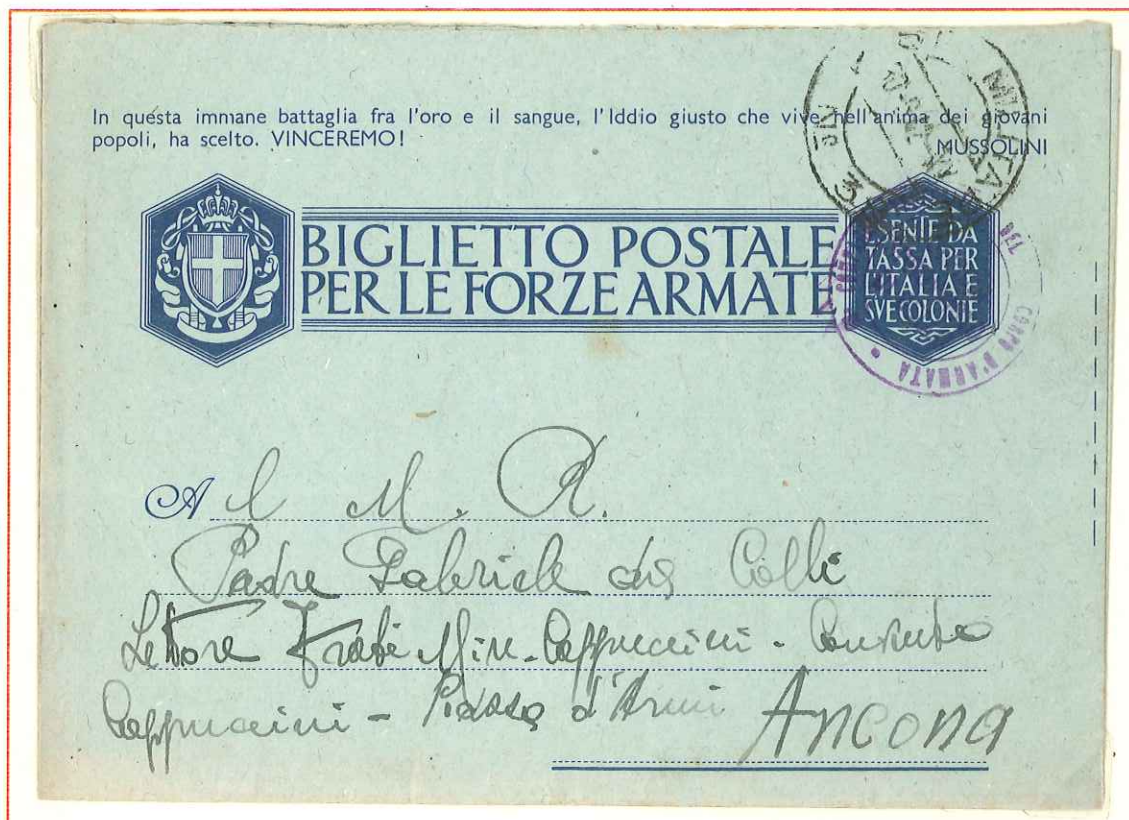 In questa immane battaglia fra l'oro e il sangue, l'Iddio giusto che vive nell'anima dei giovani
popoli, ha scelto. VINCEREMO! MUSSOLINI
BIGLIETTO POSTALE
PER LE FORZE ARMATE
ESENTE DA
TASSA PER
L'ITALIA E
SVE COLONIE
MILITARE
DEL CORPO D'ARMATA
Al M. R.
Padre Gabriele dai Colli
Lettore Frati Min. Cappuccini - Convento
Cappuccini - Piazza d'Armi Ancona